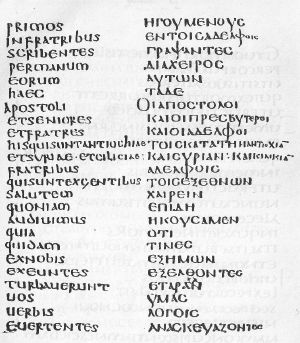 PRIMOS ΗΓΟΥΜΕΝΟΥС
INFRATRIBUS ΕΝΤΟΙСΑΔΕΛΦΟΙС
SCRIBENTES ΓΡΑΨΑΝΤΕС
PERMANUM ΔΙΑΧΕΙΡΟС
EORUM ΑΥΤΩΝ
HAEC ΤΑΔΕ
APOSTOLI ΟΙΑΠΟСΤΟΛΟΙ
ETSENIORES ΚΑΙΟΙΠΡΕСΒΥΤΕΡΟΙ
ETFRATRES ΚΑΙΟΙΑΔΕΛΦΟΙ
HISQUISUNTANTIOCHIAE ΤΟΙСΚΑΤΑΤΗΝΑΝΤΙΟΧΙΑ
ETSYRIAE·ETCILICIAE· ΚΑΙСΥΡΙΑΝ·ΚΑΙΚΙΛΙΚΙΑ
FRATRIBUS ΑΔΕΛΦΟΙС
QUISUNTEXGENTIBUS ΤΟΙСΕΞΕΘΝΩΝ
SALUTEM ΧΑΙΡΕΙΝ
QUONIAM ΕΠΙΔΗ
AUDIUIMUS ΗΚΟΥСΑΜΕΝ
QUIA ΟΤΙ
QUIDAM ΤΙΝΕС
EXNOBIS ΕΞΗΜΩΝ
EXEUNTES ΕΞΕΛΘΟΝΤΕС
TURBAUERUNT ΕΤΑΡΑΞΑΝ
UOS ΥΜΑС
UERBIS ΛΟΓΟΙС
EUERTENTES ΑΝΑСΚΕΥΑΖΟΝΤΕС